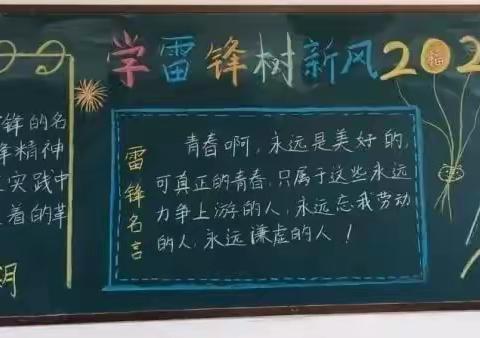 学雷锋树新风202
锋的名
锋精神
实践中
着的革
月
雷锋名言
青春啊,永远是美好的,
可真正的青春,只属于这些永远
力争上游的人,永远忘我劳动
的人,永远谦虚的人!